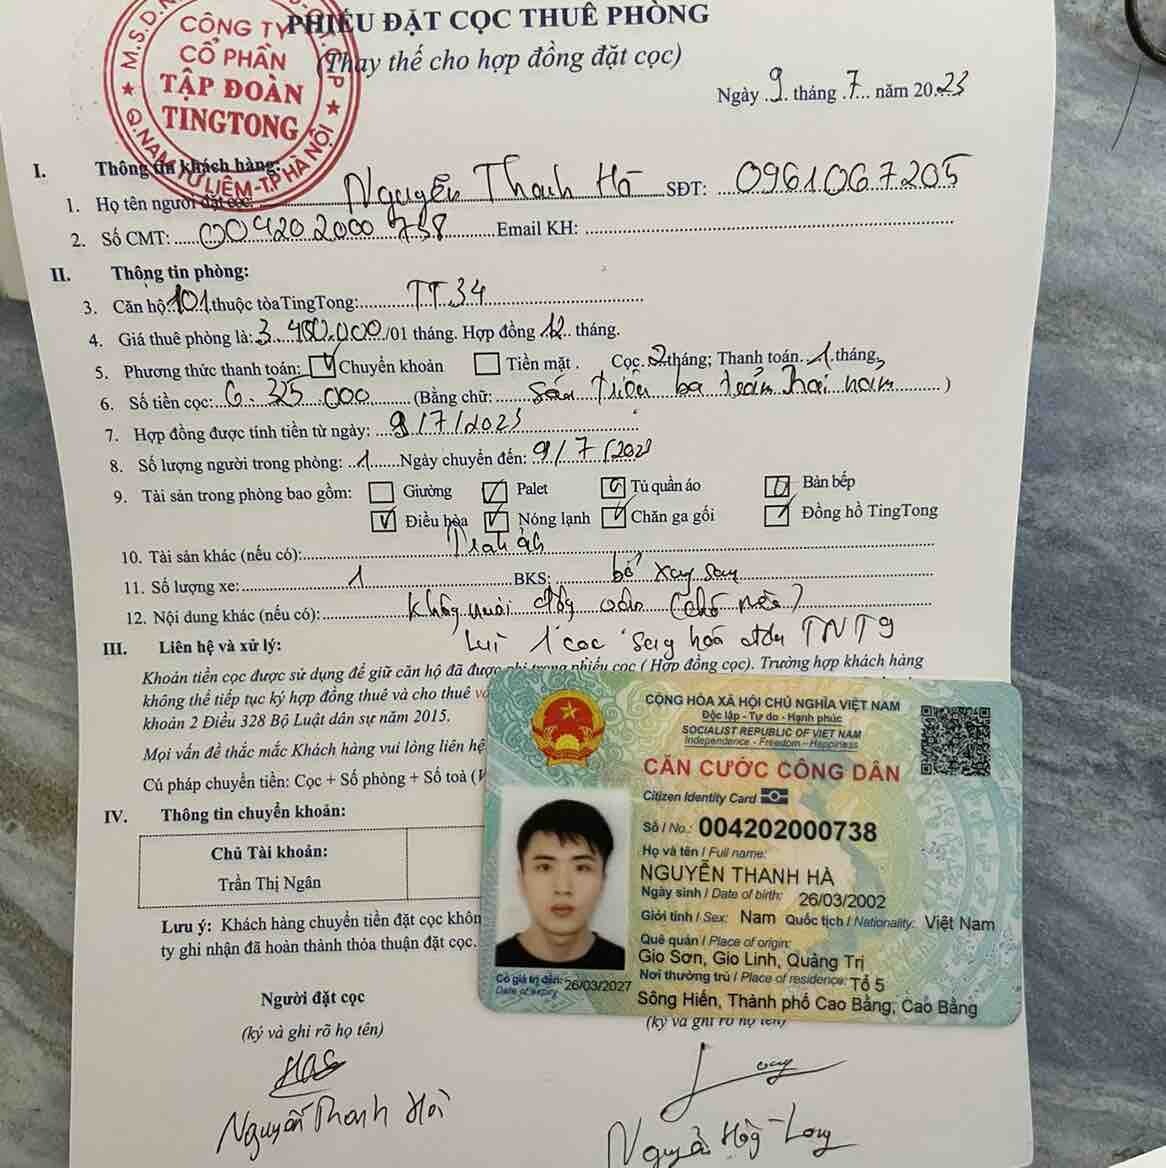 PHIẾU ĐẶT CỌC THUÊ PHÒNG
(Thay thế cho hợp đồng đặt cọc)
CÔNG TY
CỔ PHẦN
TẬP ĐOÀN
TINGTONG
Q.NAM TỪ LIÊM-T.P HÀ NỘI
Ngày 9 tháng 7 năm 2023
I. Thông tin khách hàng:
1. Họ tên người đặt cọc: Nguyễn Thanh Hà SĐT: 0961067205
2. Số CMT: 004202000738 Email KH:
II. Thông tin phòng:
3. Căn hộ: 101 thuộc tòa TingTong: TT 34
4. Giá thuê phòng là: 3.400.000/01 tháng. Hợp đồng 12 tháng.
5. Phương thức thanh toán: Chuyển khoản Tiền mặt. Cọc 2 tháng; Thanh toán 1 tháng,
6. Số tiền cọc: 6.325.000 (Bằng chữ: sáu triệu ba trăm hai năm)
7. Hợp đồng được tính tiền từ ngày: 9/7/2023
8. Số lượng người trong phòng: 1 Ngày chuyển đến: 9/7/2023
9. Tài sản trong phòng bao gồm: Giường Palet Tủ quần áo Bàn bếp
Điều hòa Nóng lạnh Chăn ga gối Đồng hồ TingTong
10. Tài sản khác (nếu có):
11. Số lượng xe: 1 BKS: bổ xung sau
12. Nội dung khác (nếu có): Không nuôi động vật (chó mèo)
lùi 1 cọc sang hoá đơn TNT9
III. Liên hệ và xử lý:
Khoản tiền cọc được sử dụng để giữ căn hộ đã được ghi trong phiếu cọc ( Hợp đồng cọc). Trường hợp khách hàng
không thể tiếp tục ký hợp đồng thuê và cho thuê
khoản 2 Điều 328 Bộ Luật dân sự năm 2015.
Mọi vấn đề thắc mắc Khách hàng vui lòng liên hệ
Cú pháp chuyển tiền: Cọc + Số phòng + Số toà
IV. Thông tin chuyển khoản:
Chủ Tài khoản:
Trần Thị Ngân
Lưu ý: Khách hàng chuyển tiền đặt cọc
ty ghi nhận đã hoàn thành thỏa thuận đặt cọc.
CỘNG HÒA XÃ HỘI CHỦ NGHĨA VIỆT NAM
Độc lập - Tự do - Hạnh phúc
SOCIALIST REPUBLIC OF VIET NAM
Independence - Freedom - Happiness
CĂN CƯỚC CÔNG DÂN
Citizen Identity Card
Số / No.: 004202000738
Họ và tên / Full name:
NGUYỄN THANH HÀ
Ngày sinh / Date of birth: 26/03/2002
Giới tính / Sex: Nam Quốc tịch / Nationality: Việt Nam
Quê quán / Place of origin:
Gio Sơn, Gio Linh, Quảng Trị
Nơi thường trú / Place of residence: Tổ 5
Sông Hiến, Thành phố Cao Bằng, Cao Bằng
Có giá trị đến: 26/03/2027
Date of expiry
Người đặt cọc
(ký và ghi rõ họ tên)
(ký và ghi rõ họ tên)
Nguyễn Thanh Hà
Long